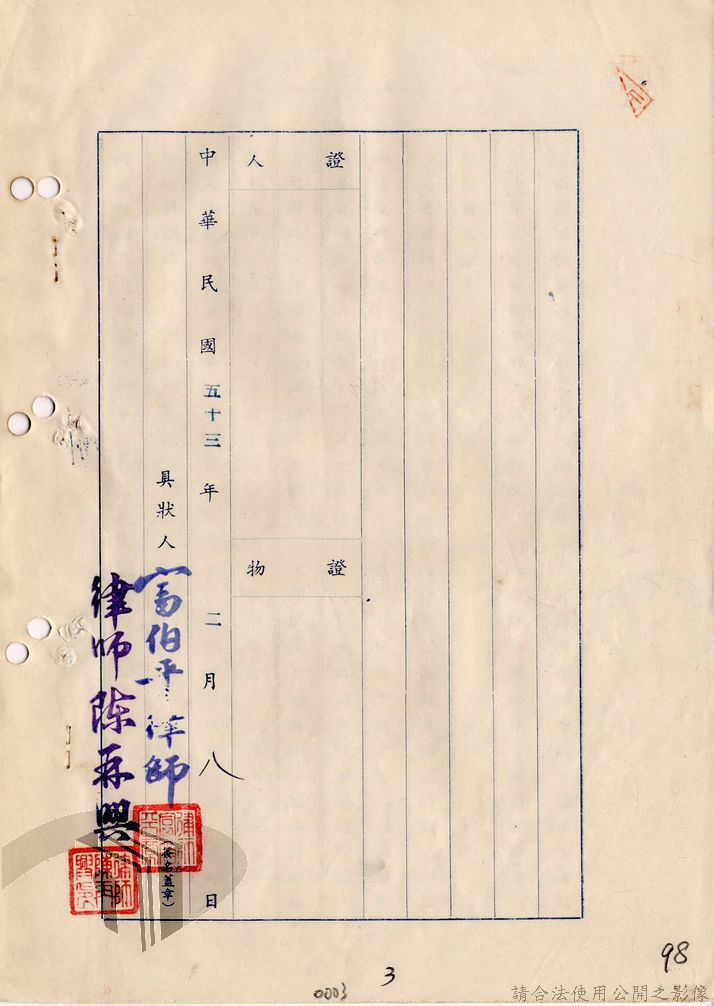 證人
證物
中華民國五十三年二月八日
具狀人
富伯平律師
(簽名蓋章)
律師陳再興
3
0003
98
請合法使用公開之影像